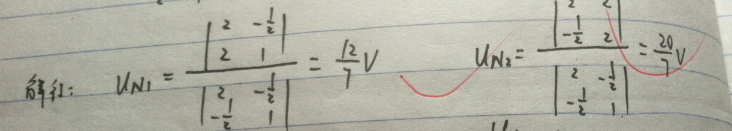 解红: U_{N1} = \frac{\begin{vmatrix} 2 & -\frac{1}{2} \\ 2 & 1 \end{vmatrix}}{\begin{vmatrix} 2 & -\frac{1}{2} \\ -\frac{1}{2} & 1 \end{vmatrix}} = \frac{12}{7} V  U_{N2} = \frac{\begin{vmatrix} 2 & 2 \\ -\frac{1}{2} & 2 \end{vmatrix}}{\begin{vmatrix} 2 & -\frac{1}{2} \\ -\frac{1}{2} & 1 \end{vmatrix}} = \frac{20}{7} V